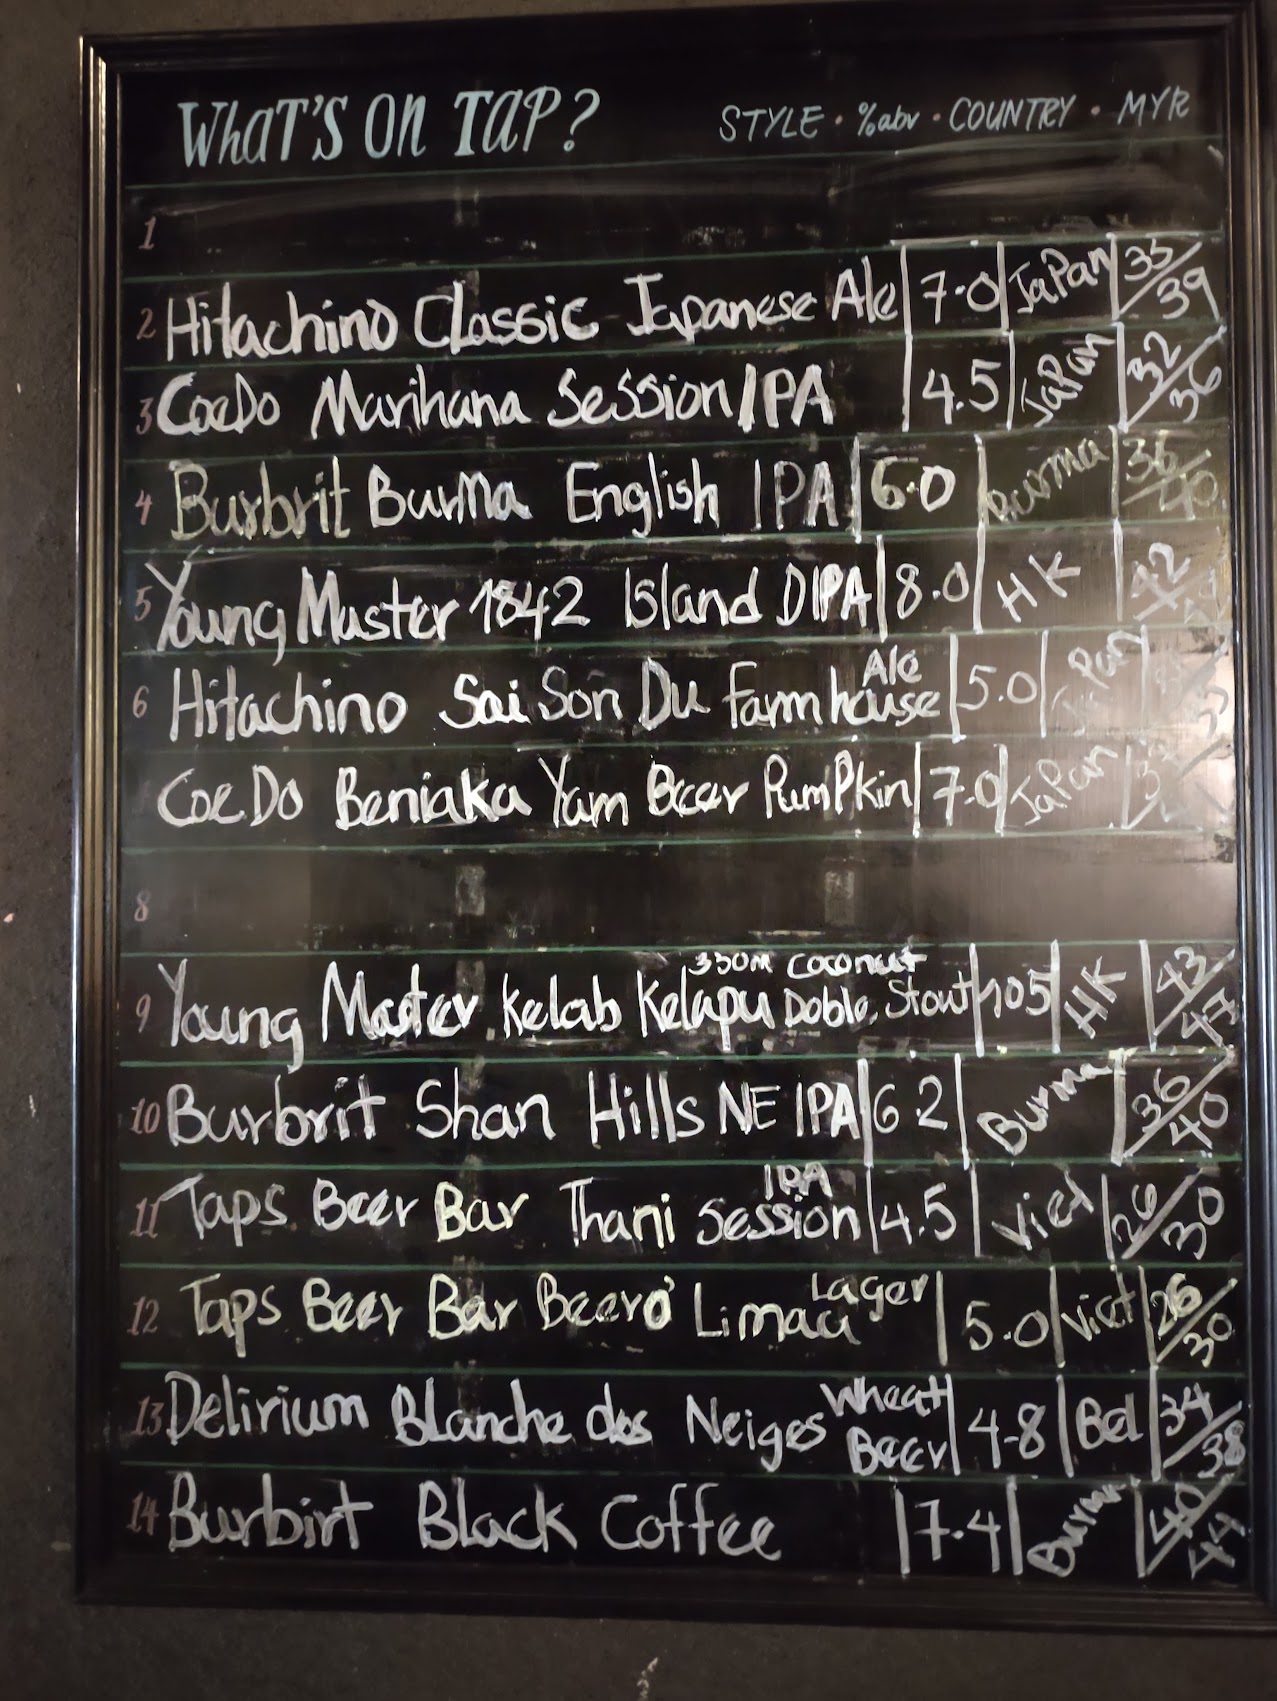 WHAT'S ON TAP? STYLE · %abv · COUNTRY · MYR
1
2 Hitachino Classic Japanese Ale 7.0 Japan 35/39
3 CoeDo Marihana Session IPA 4.5 Japan 32/36
4 Burbrit Burma English IPA 6.0 Burma 36/40
5 Young Master 1842 Island DIPA 8.0 HK 42
6 Hitachino Sai Son Du Farmhouse Ale 5.0 Japan
CoeDo Beniaka Yam Beer PumPkin 7.0 Japan
8
9 Young Master Kelab Kelapu 330M Coconut Doble Stout 10.5 HK 43/47
10 Burbrit Shan Hills NE IPA 6.2 Burma 36/40
11 Taps Beer Bar Thani Session IPA 4.5 Viet 26/30
12 Taps Beer Bar Beero' Limaa Lager 5.0 Viet 26/30
13 Delirium Blanche des Neiges Wheat Beer 4.8 Bel 34/38
14 Burbirt Black Coffee 7.4 Burma 40/44